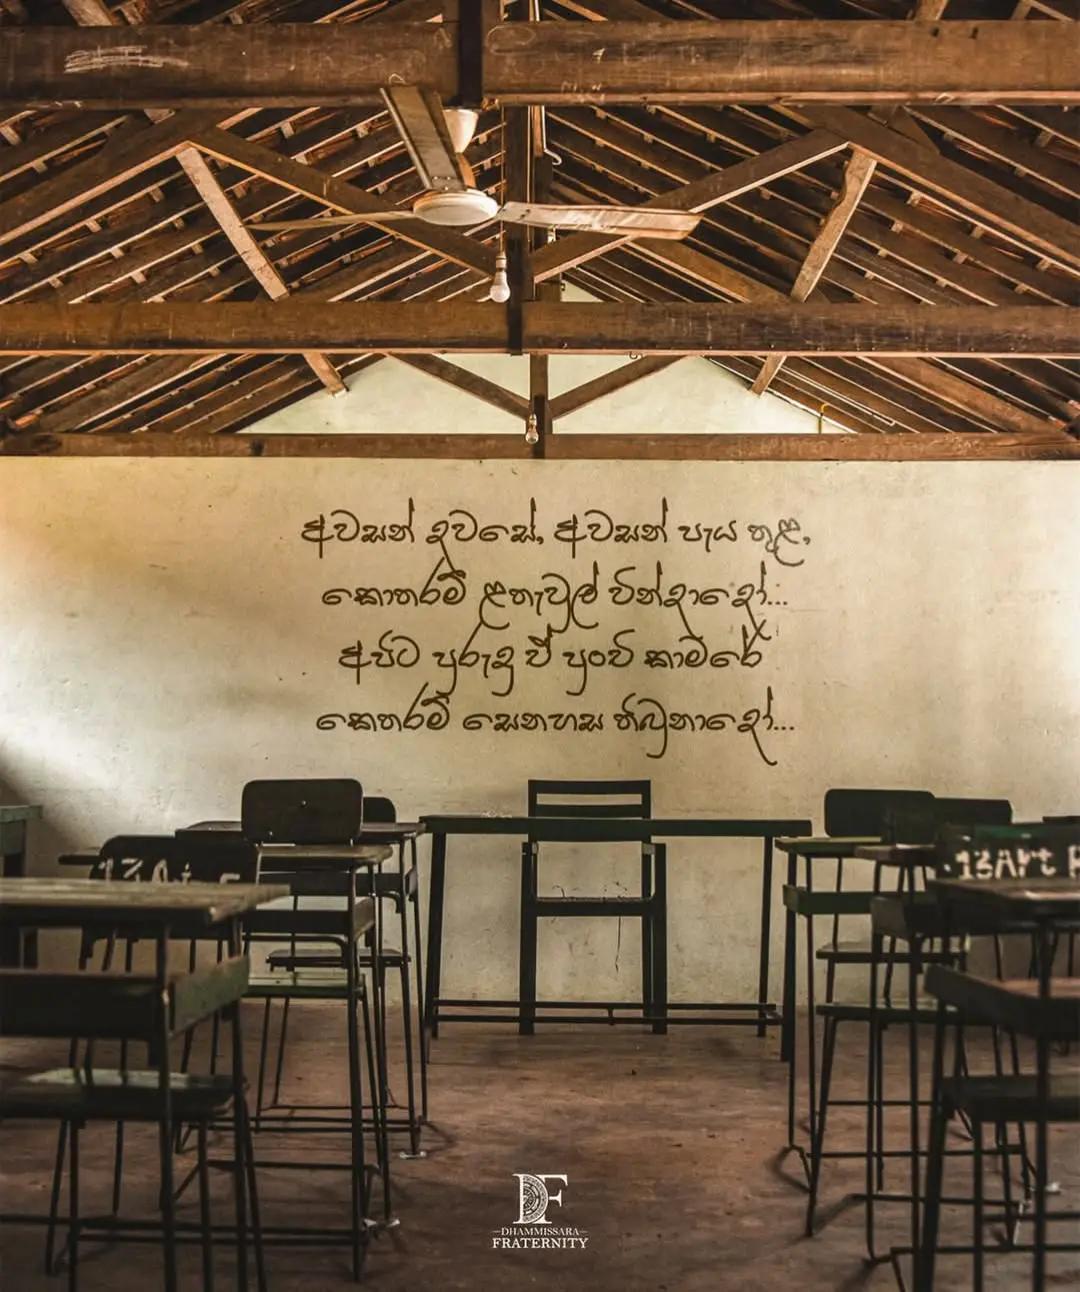 අවසන් දවසේ, අවසන් පැය තුළ,
කොතරම් ළතැවුල් වින්දාදෝ...
අපිට පුරුදු ඒ පුංචි කාමරේ
කෙතරම් සෙනෙහස තිබුනාදෝ...
13Art
13Art
DF
DHAMMISSARA
FRATERNITY